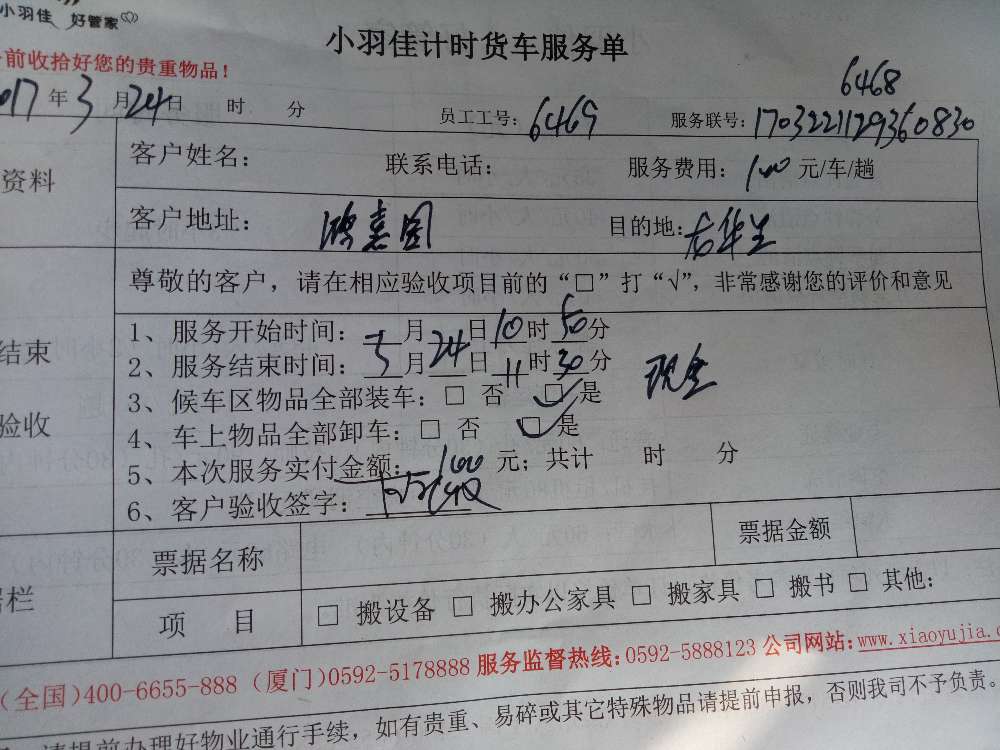 小羽佳 好管家
小羽佳计时货车服务单
前收拾好您的贵重物品！
6468
017年3月24日 时 分 员工工号：6469 服务联号：1703221129360830
资料
客户姓名： 联系电话： 服务费用：100元/车/趟
客户地址：鸿嘉园 目的地：
尊敬的客户，请在相应验收项目前的“□”打“√”，非常感谢您的评价和意见
结束
验收
1、服务开始时间： 月24日10时50分
2、服务结束时间：3月 日11时30分
现金
3、候车区物品全部装车：□ 否 □√ 是
4、车上物品全部卸车：□ 否 □√ 是
5、本次服务实付金额：100元；共计 时 分
6、客户验收签字：
栏
票据名称 票据金额
项 目 □ 搬设备 □ 搬办公家具 □ 搬家具 □ 搬书 □ 其他：
（全国）400-6655-888（厦门）0592-5178888 服务监督热线：0592-5888123 公司网站：www.xiaoyujia.c
请提前办理好物业通行手续，如有贵重、易碎或其它特殊物品请提前申报，否则我司不予负责。